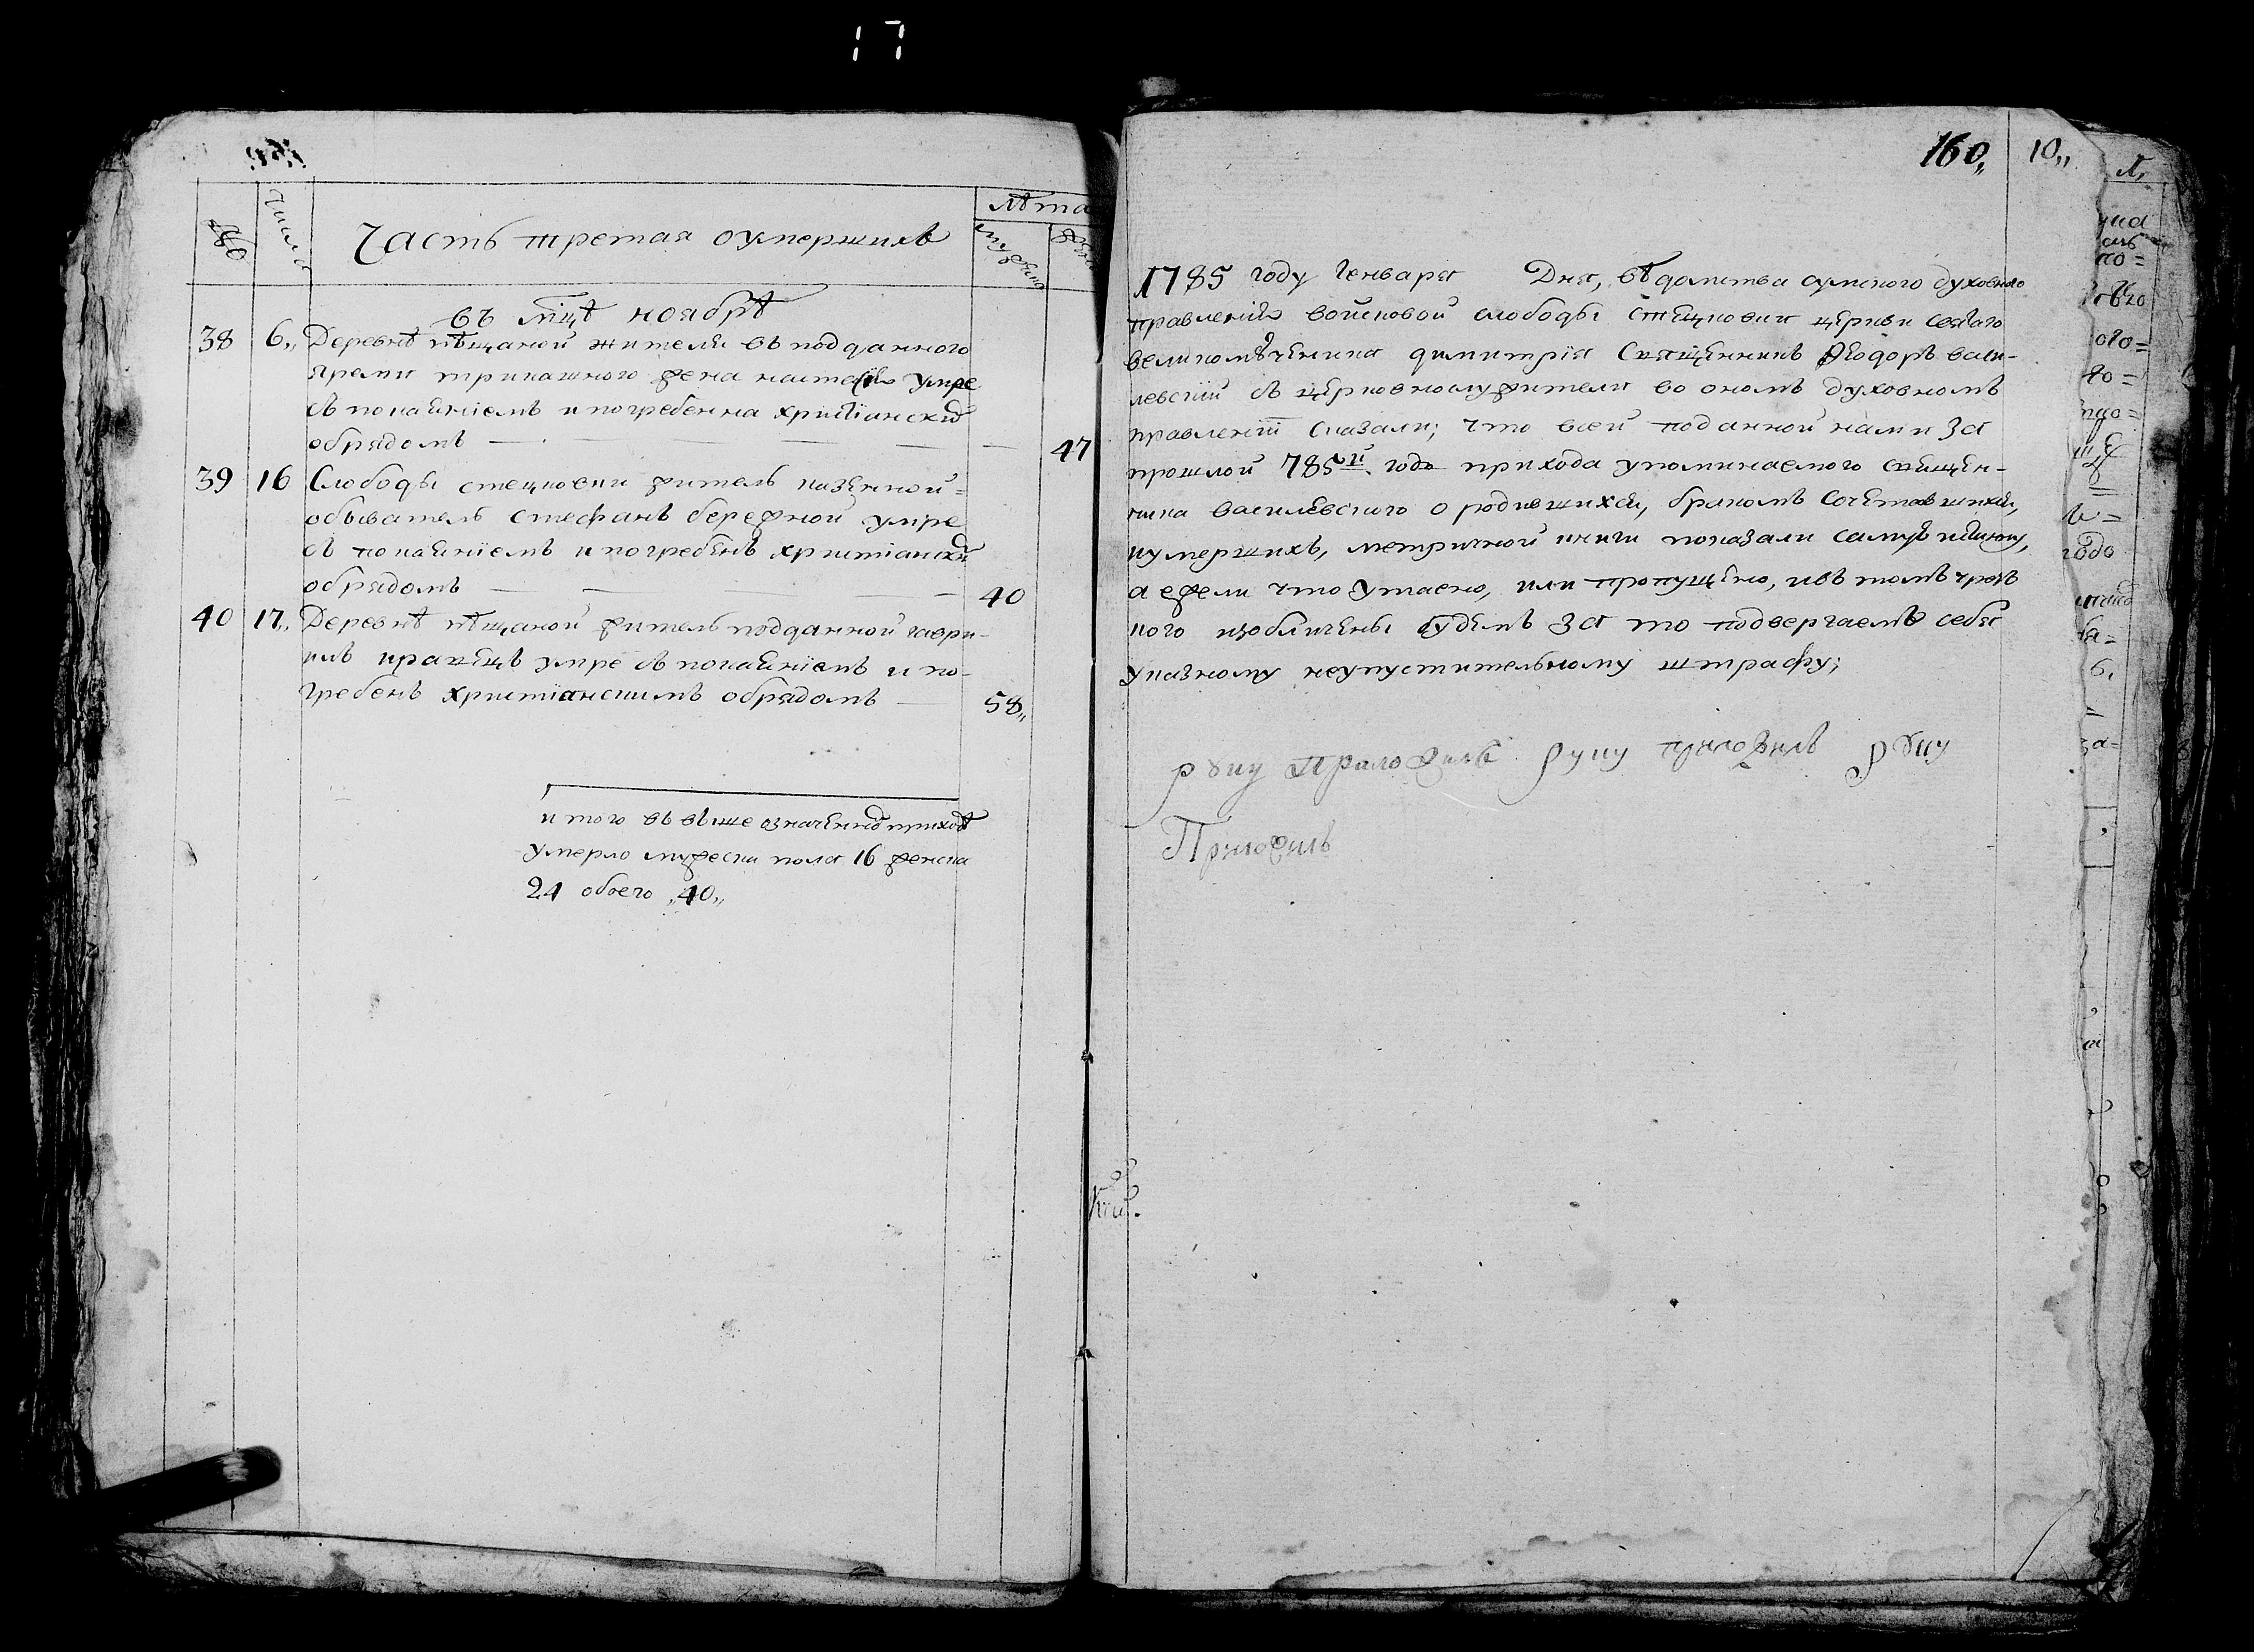 17
160„
10„
№
число
Часть третая оумершихъ
лѣта
въ мцѣ ноябрѣ
38 6„ Деревнѣ пѣщаной жителя въ подданного
яреми трикашного жена настасїя умре
съ покаянїемъ и погребенна христїанскимъ
обрядомъ — 47
39 16 Слободы стецковки житель казенной=
обыватель стефанъ бережной умре
съ покаянїемъ и погребенъ христїански
обрядомъ — 40
40 17„ Деревнѣ пѣщаной житель подданной гаври-
илъ кравецъ умре съ покаянїемъ и по-
гребенъ христїанскимъ обрядомъ — 58„
итого въ выше означенно приходѣ
умерло мужеска пола 16 женска
24 обоего „40„
1785 году Генваря Дня, вѣдомства сумского духовного
правленїя войсковой слободы стецковки церкви святаго
великомученика димитрїя Священникъ Ѳеодоръ васи-
левскїй съ церковнослужители во ономъ духовномъ
правленїи сказали; что всей поданной нами за
прошлой 785й годъ прихода упоминаемого священ-
ника василевского о родившихся, бракомъ сочетавшихся,
иумершихъ, метричной книги показали самую истинну,
а ежели что утаено, или пропущено, ивъ томъ чрезъ
кого изобличены будемъ за то подвергаемъ себя
указному неупустительному штрафу;
руку приложилъ руку приложилъ руку
Приложилъ